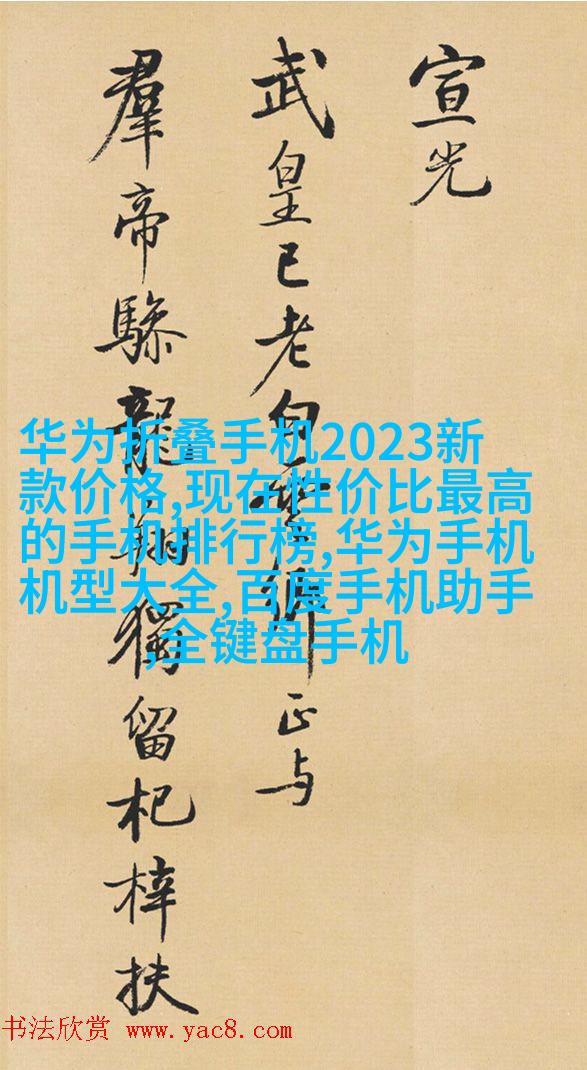 宣光
武皇已老白雲鄉正与
羣帝驂龍翔獨留杞梓扶
华为折叠手机2023新
款价格,现在性价比最高
的手机排行榜,华为手机
机型大全,百度手机助手
,全键盘手机
书法欣赏 www.yac8.com